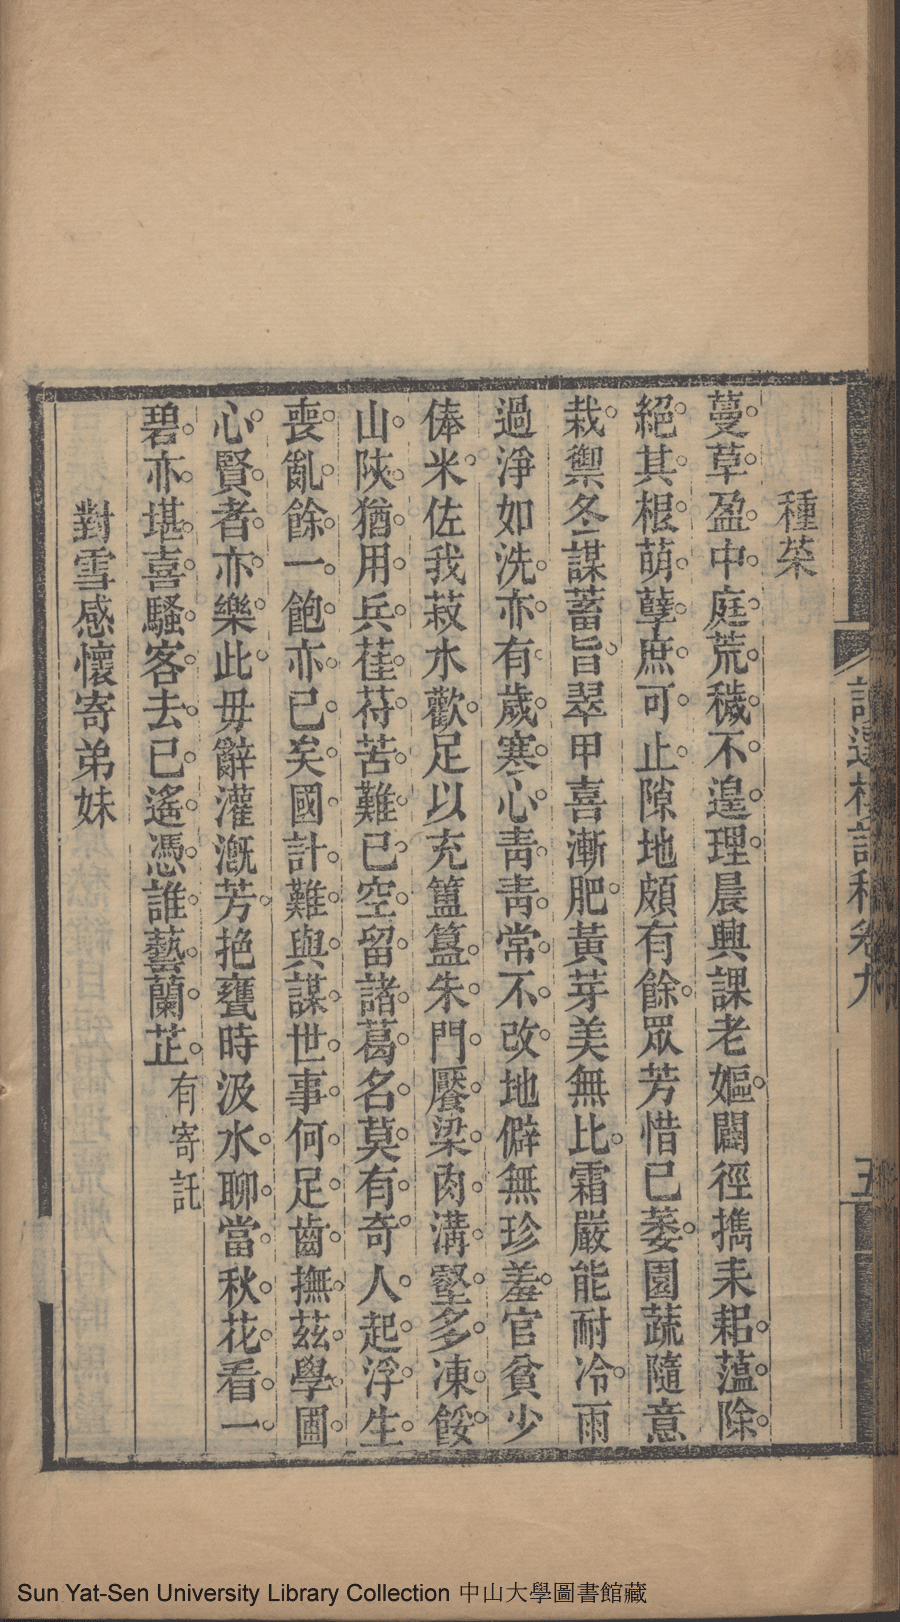 種菜
蔓草盈中庭荒穢不遑理晨興課老嫗闢徑攜耒耜薀除
絕其根萌孽庶可止隙地頗有餘眾芳惜已萎園蔬隨意
栽禦冬謀蓄旨翠甲喜漸肥黃芽美無比霜嚴能耐冷雨
過淨如洗亦有歲寒心靑靑常不改地僻無珍羞官貧少
俸米佐我菽水歡足以充簠簋朱門饜梁肉溝壑多凍餒
山陝猶用兵萑苻苦難已空留諸葛名莫有奇人起浮生
喪亂餘一飽亦已矣國計難與謀世事何足齒撫茲學圃
心賢者亦樂此毋辭灌漑芳抱甕時汲水聊當秋花看一
碧亦堪喜騷客去已遙憑誰藝蘭芷有寄託
對雪感懷寄弟妹
詩選樓詩稿卷九
五
Sun Yat-Sen University Library Collection 中山大學圖書館藏